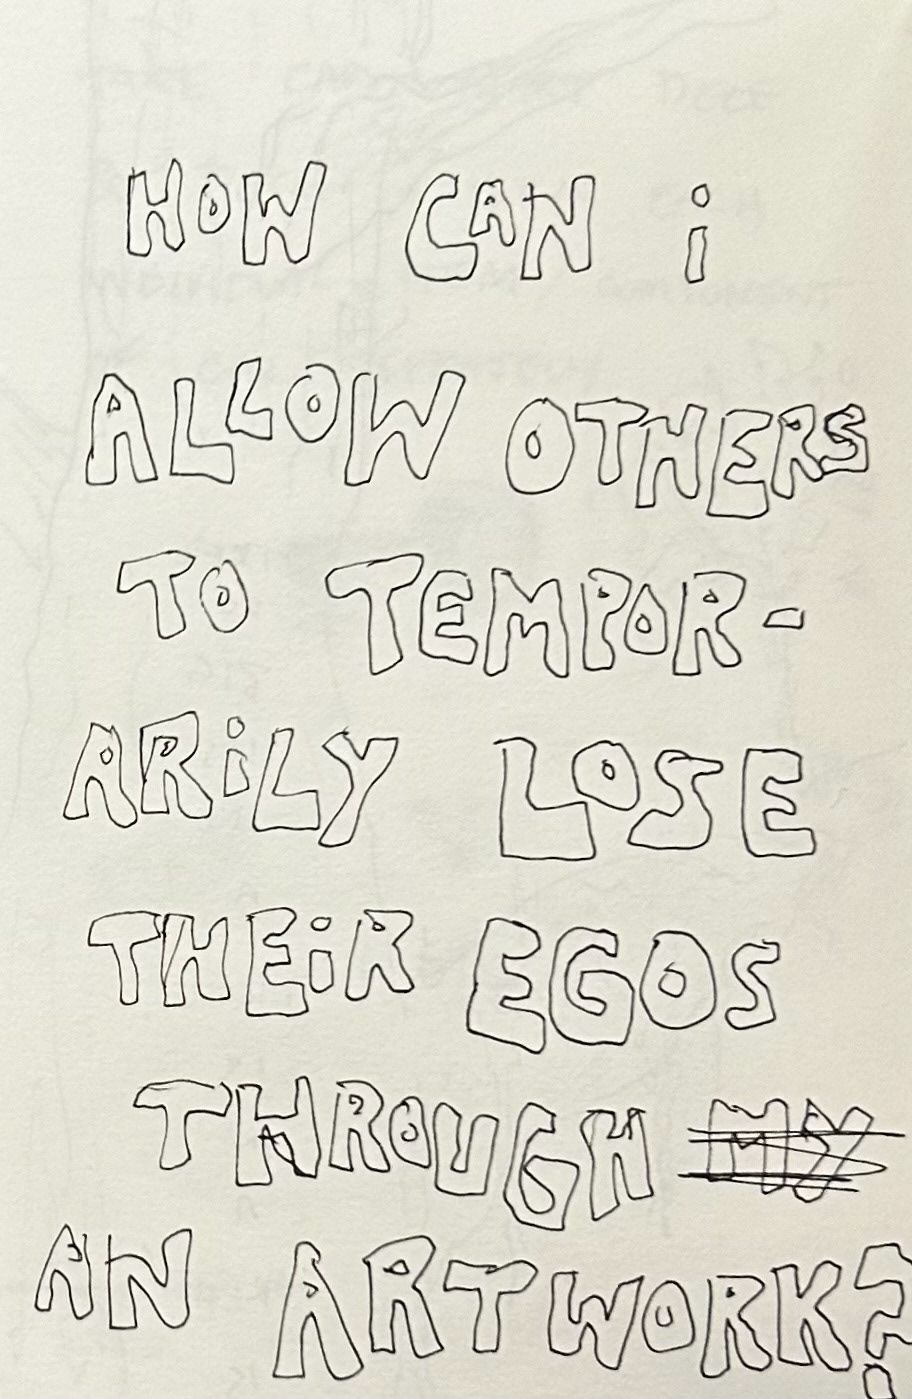 HOW CAN i
ALLOW OTHERS
TO TEMPOR-
ARiLY LOSE
THEiR EGOS
THROUGH MY
AN ARTWORK?